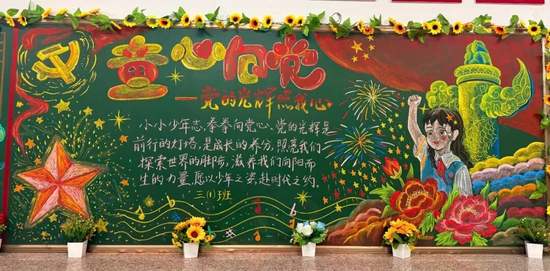 童心向党
——党的光辉照我心
小小少年志,拳拳向党心,党的光辉是
前行的灯塔,是成长的养分,照亮我们
探索世界的脚步,滋养我们向阳而
生的力量,愿以少年之姿,赴时代之约。
三(1)班